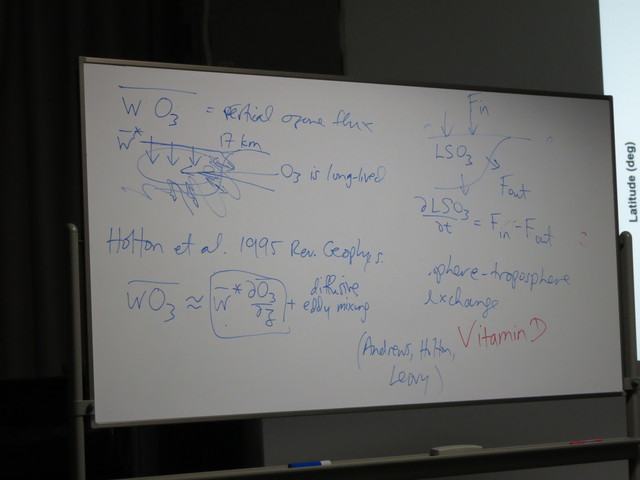 W O3 = vertical ozone flux
W* 17 km
O3 is long-lived
Holton et al. 1995 Rev. Geophys.
WO3 ≈ W* ∂O3/∂z + diffusive eddy mixing
(Andrews, Holton,
Leovy)
Fin
LSO3
Fout
∂LSO3/∂t = Fin - Fout
sphere-troposphere
exchange
Vitamin D
Latitude (deg)